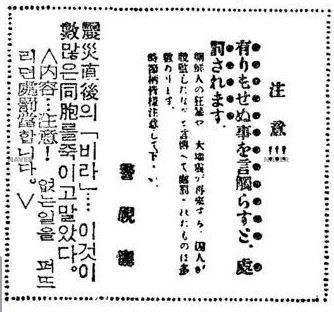 注意!!!
有りもせぬ事を言觸らすと、處
罰されます。
朝鮮人の狂暴や、大地震が再來する、囚人が
脱監したなぞと言傳へて處罰されたものは多
數あります。
時節柄皆樣注意して下さい。
警視廳
震災直後의「비라」… 이것이
數많은同胞를죽이고말았다。
<内容…注意! 없는일을 퍼뜨
리면處罰當합니다。>